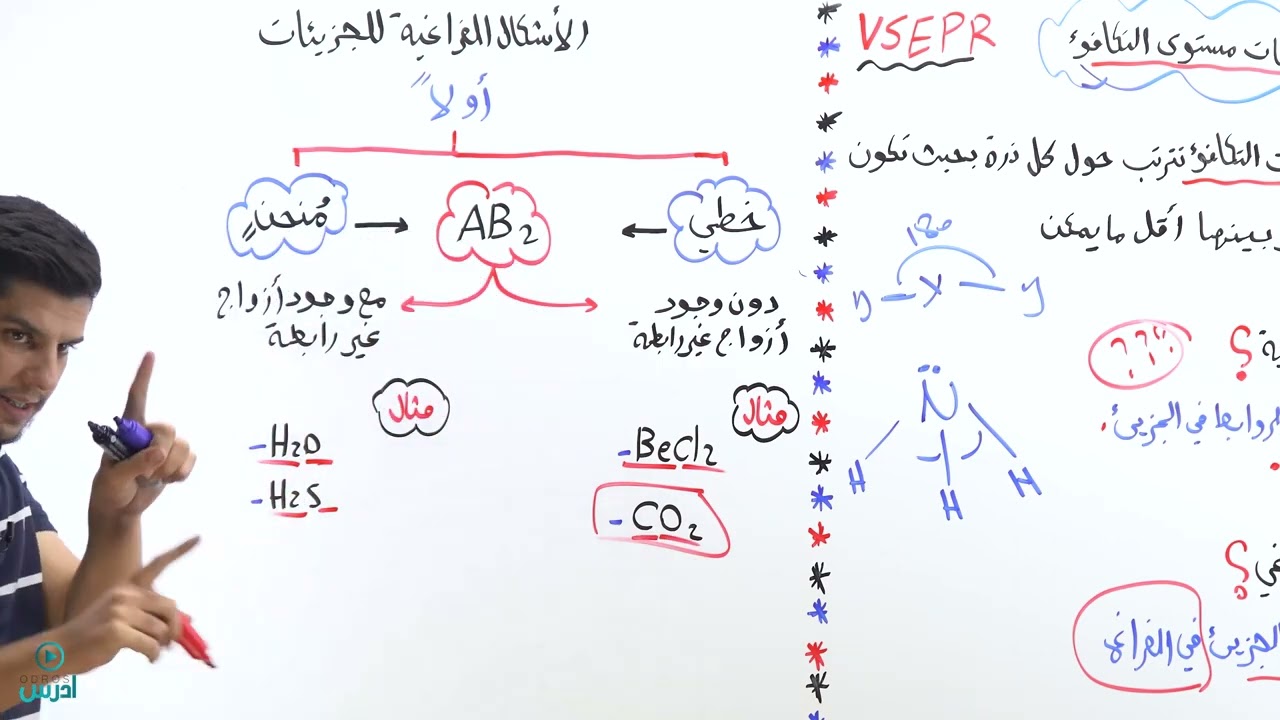 VSEPR
مستوى التكافؤ
التكافؤ تترتب حول كل ذرة بحيث تكون
بينها أقل ما يمكن
180
y - X - y
؟؟؟
؟
N
H H H
الروابط في الجزيئ
؟
الجزيئ في الفراغ
الأشكال الفراغية للجزيئات
أولاً
خطي
AB2
مُنحنٍ
دون وجود
أزواج غير رابطة
مع وجود أزواج
غير رابطة
مثال
- BeCl2
- CO2
مثال
- H2O
- H2S
ODROS
ادرس